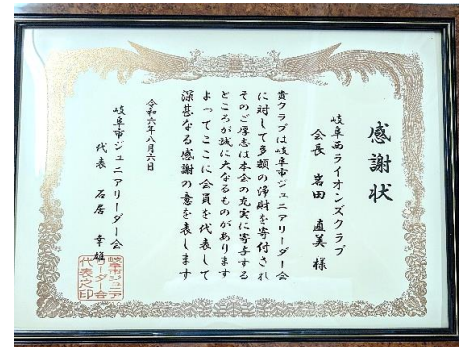 感謝状
岐阜西ライオンズクラブ
会長 岩田 直美 様
貴クラブは岐阜市ジュニアリーダー会
に対して多額の浄財を寄付され
そのご厚志は本会の充実に寄与する
ところが誠に大なるものがあります
よってここに会員を代表して
深甚なる感謝の意を表します
令和六年八月六日
岐阜市ジュニアリーダー会
代表 石居 幸雄
岐阜市ジュニア
リーダー会
代表之印